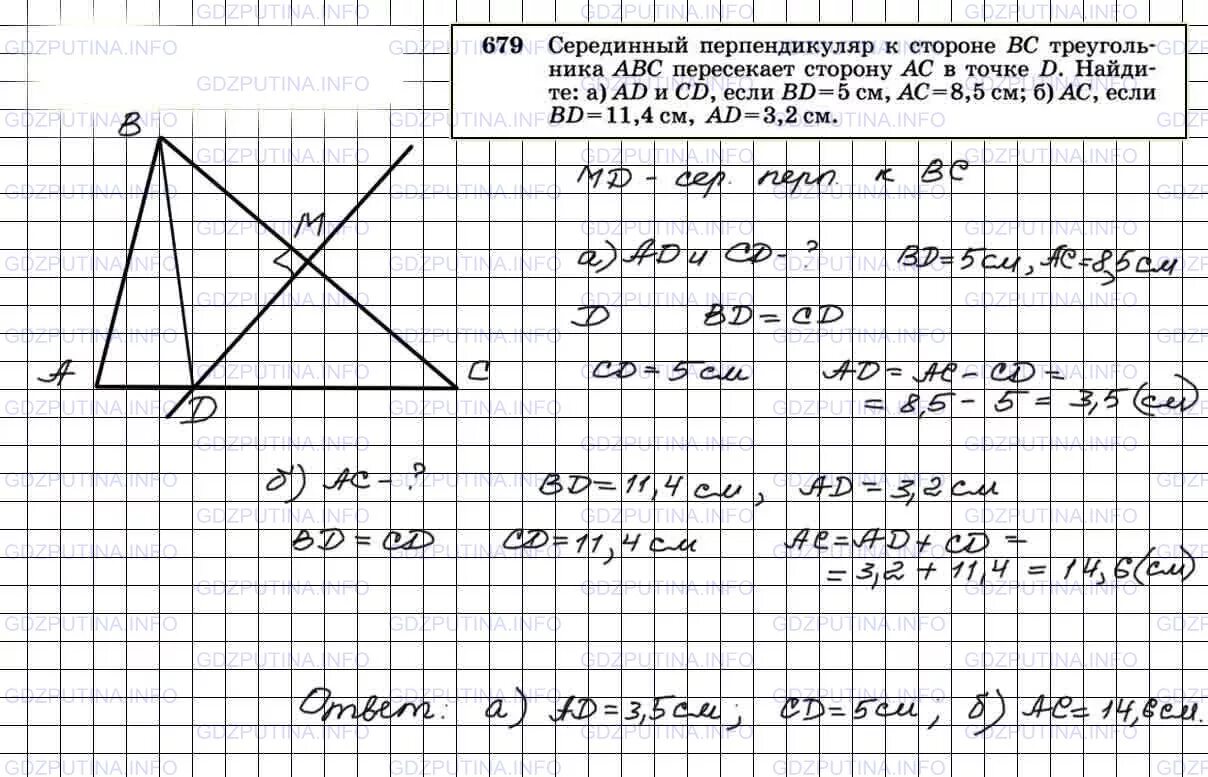 GDZPUTINA.INFO
679 Серединный перпендикуляр к стороне BC треуголь-
ника ABC пересекает сторону AC в точке D. Найди-
те: а) AD и CD, если BD=5 см, AC=8,5 см; б) AC, если
BD=11,4 см, AD=3,2 см.
B
M
A
C
D
MD - сер. перп. к BC
а) AD и CD - ? BD = 5 см, AC = 8,5 см
D BD = CD
CD = 5 см AD = AC - CD =
= 8,5 - 5 = 3,5 (см)
б) AC - ? BD = 11,4 см, AD = 3,2 см
BD = CD CD = 11,4 см AC = AD + CD =
= 3,2 + 11,4 = 14,6 (см)
Ответ: а) AD = 3,5 см; CD = 5 см; б) AC = 14,6 см.